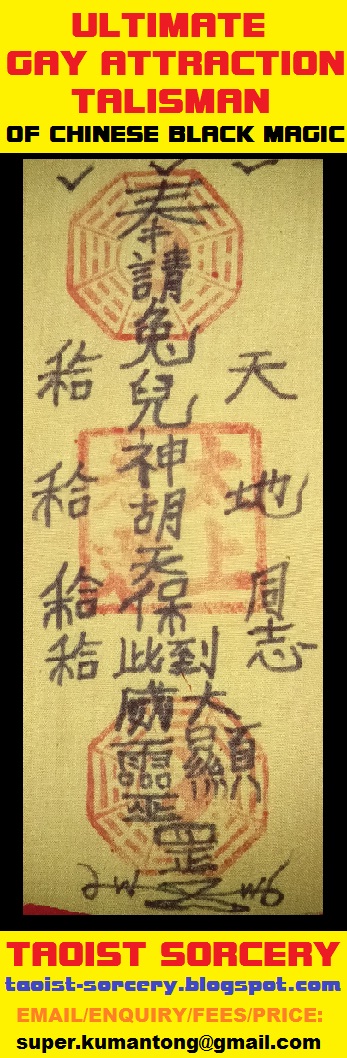 ULTIMATE
GAY ATTRACTION
TALISMAN
OF CHINESE BLACK MAGIC
天地同志
奉請兔兒神胡保
到此
大顯威靈
罡
TAOIST SORCERY
taoist-sorcery.blogspot.com
EMAIL/ENQUIRY/FEES/PRICE:
super.kumantong@gmail.com